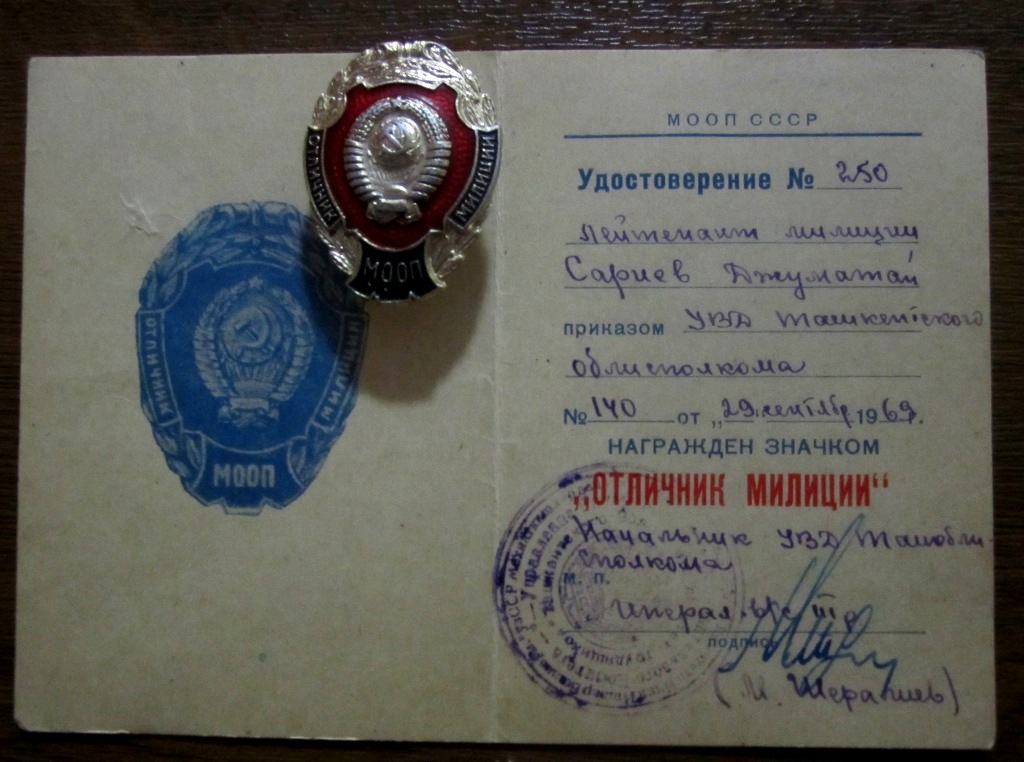 ОТЛИЧНИК
МИЛИЦИИ
МООП
ОТЛИЧНИК
МИЛИЦИИ
МООП
МООП СССР
Удостоверение № 250
Лейтенант милиции
Сариев Джуматай
приказом УВД Ташкентского
облисполкома
№ 140 от „29 сентябр 1969г.
НАГРАЖДЕН ЗНАЧКОМ
„ОТЛИЧНИК МИЛИЦИИ“
Начальник УВД Ташобли-
сполкома
М. П.
подпись